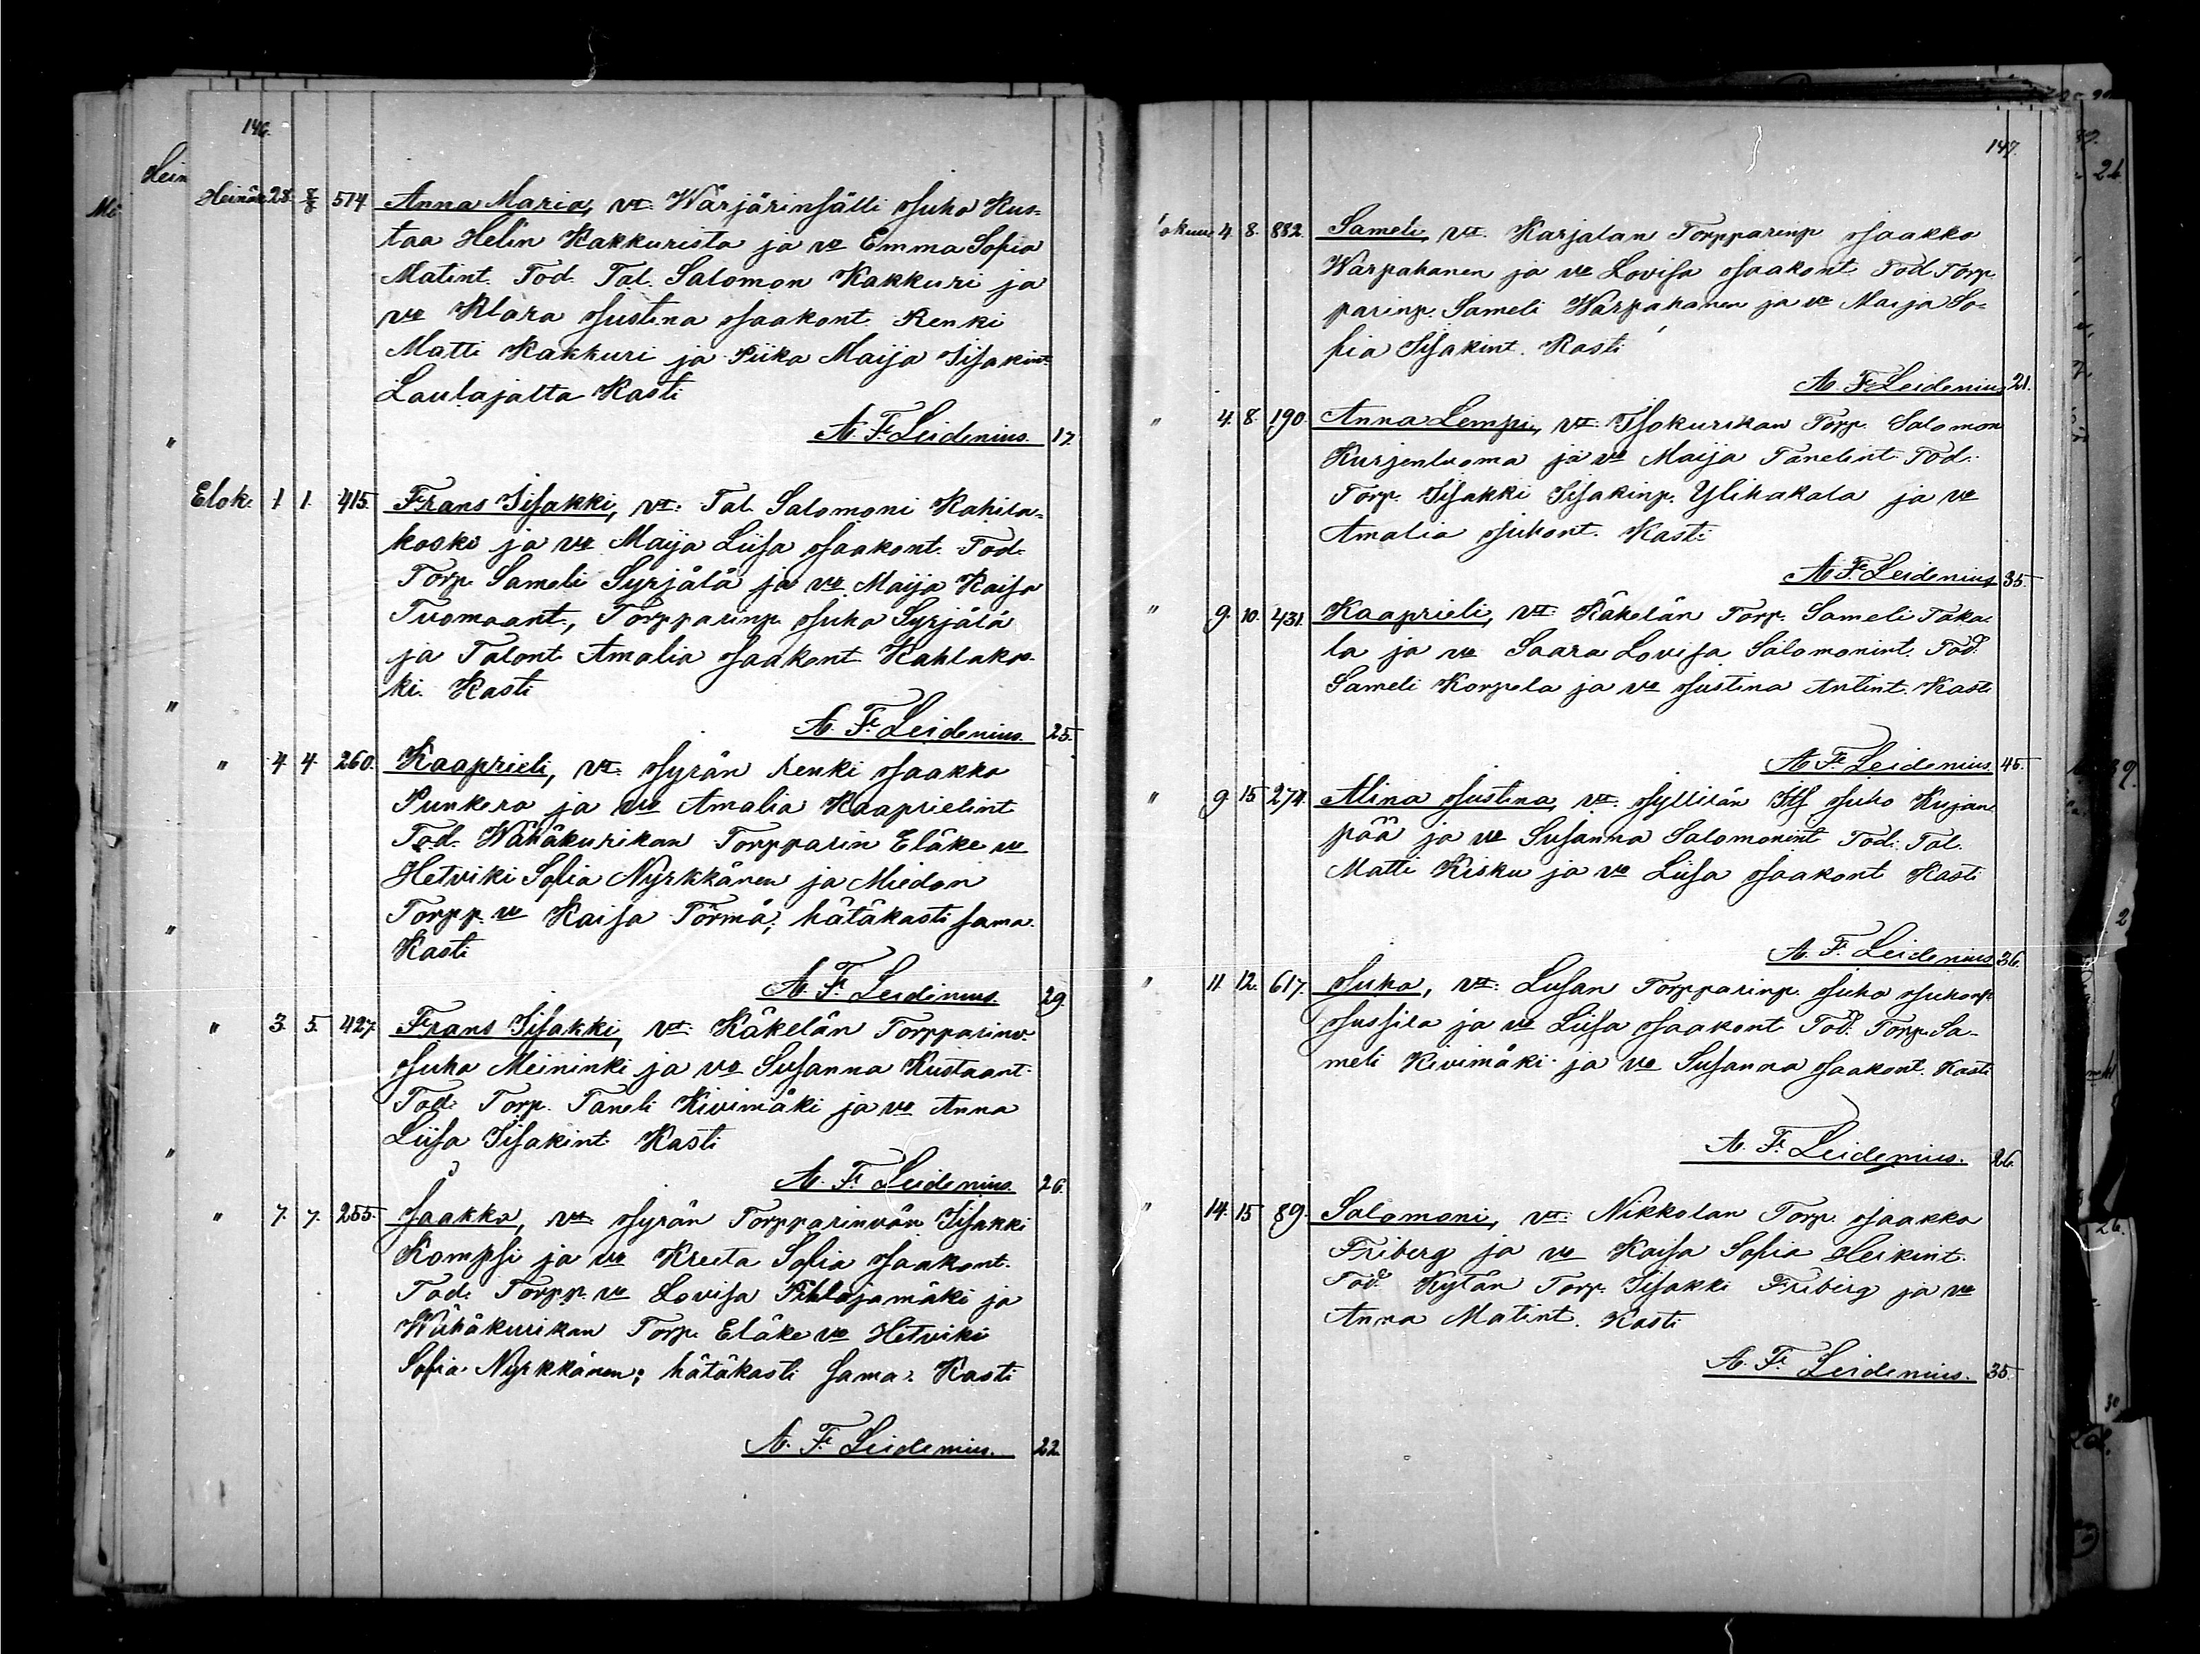 146.
Heinäk. 28. 8/8 574 Anna Maria, vt: Wärjärinsälli Juho Kus-
taa Helin Kakkurista ja vo Emma Sofia
Matint. Tod. Tal. Salomon Kakkuri ja
vo Klara Justina Jaakont. Renki
Matti Kakkuri ja Piika Maija Iisakint.
Laulajalta Kasti
A. F. Leidenius. 17.
Elok. 1 1. 415. Frans Iisakki, vt: Tal. Salomoni Kahila-
koski ja vo Maija Liisa Jaakont. Tod.
Torp. Sameli Syrjälä ja vo Maija Kaisa
Tuomaant., Torpparinp. Juho Syrjälä
ja Talont. Amalia Jaakont. Kahlakos-
ki. Kasti
A. F. Leidenius. 25.
" 4. 4. 260. Kaaprieli, vt: Jyrän renki Jaakko
Punkero ja vo Amalia Kaaprielint
Tod. Wähäkurikan Torpparin Eläke vo
Hetviki Sofia Nyrkkänen ja Miedon
Torpp. vo Kaisa Törmä; hätäkasti sama.
Kasti
A. F. Leidenius. 29
" 3. 5. 427. Frans Iisakki, vt: Käkelän Torpparinv.
Juho Meininki ja vo Susanna Kustaant.
Tod: Torp. Taneli Kivimäki ja vo Anna
Liisa Iisakint. Kasti
A. F. Leidenius. 26.
" 7. 7. 255. Jaakko, vt: Jyrän Torpparinvän Iisakki
Kompsi ja vo Kreeta Sofia Jaakont.
Tod: Torpp. vo Lovisa Pihlajamäki ja
Wähäkurikan Torp. Eläke vo Hetviki
Sofia Nyrkkänen; hätäkasti sama: Kasti
A. F. Leidenius. 22.
147.
4. 8. 882. Sameli, vt: Karjalan Torpparinp Jaakko
Warpahanen ja vo Lovisa Jaakont. Tod Torp-
parinp. Sameli Warpahanen ja vo Maija So-
fia Iisakint. Kasti
A. F. Leidenius 21.
" 4. 8. 190. Anna Lempi, vt: Isokurikan Torp. Salomon
Kurjenluoma ja vo Maija Tanelint. Tod:
Torp. Iisakki Iisakinp. Ylihakala ja vo
Amalia Juhont. Kasti
A. F. Leidenius 35.
" 9. 10. 431. Kaaprieli, vt: Käkelän Torp. Sameli Taka-
la ja vo Saara Lovisa Salomonint. Tod:
Sameli Korpela ja vo Justina Antint. Kasti
A. F. Leidenius 45.
" 9. 15 274. Alina Justina, vt: Jyllilän Its Juho Kujan-
pää ja vo Susanna Salomonint Tod: Tal.
Matti Kisku ja vo Liisa Jaakont Kasti
A. F. Leidenius 36.
" 11. 12. 617. Juho, vt: Lusan Torpparinp. Juho Juhonp
Jussila ja vo Liisa Jaakont Tod: Torp. Sa-
meli Kivimäki ja vo Susanna Jaakont. Kasti
A. F. Leidenius. 26.
" 14. 15 89. Salomoni, vt: Nikkolan Torp. Jaakko
Friberg ja vo Kaisa Sofia Heikint.
Tod: Kytän Torp. Iisakki Friberg ja vo
Anna Matint. Kasti
A. F. Leidenius. 35.